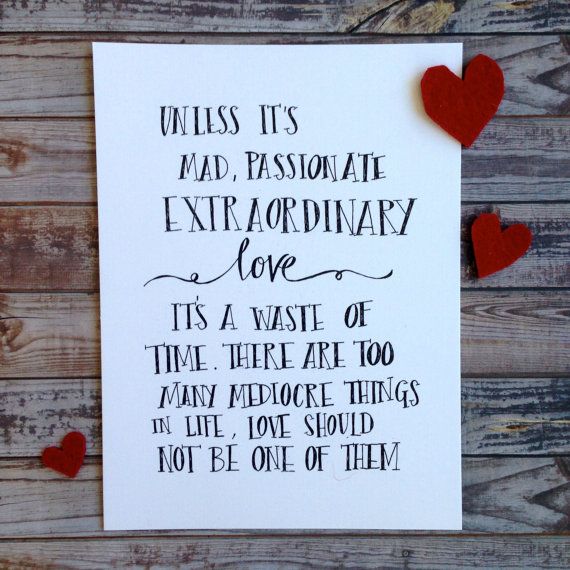 UNLESS IT'S
MAD, PASSIONATE
EXTRAORDINARY
love
IT'S A WASTE OF
TIME. THERE ARE TOO
MANY MEDIOCRE THINGS
IN LIFE, LOVE SHOULD
NOT BE ONE OF THEM